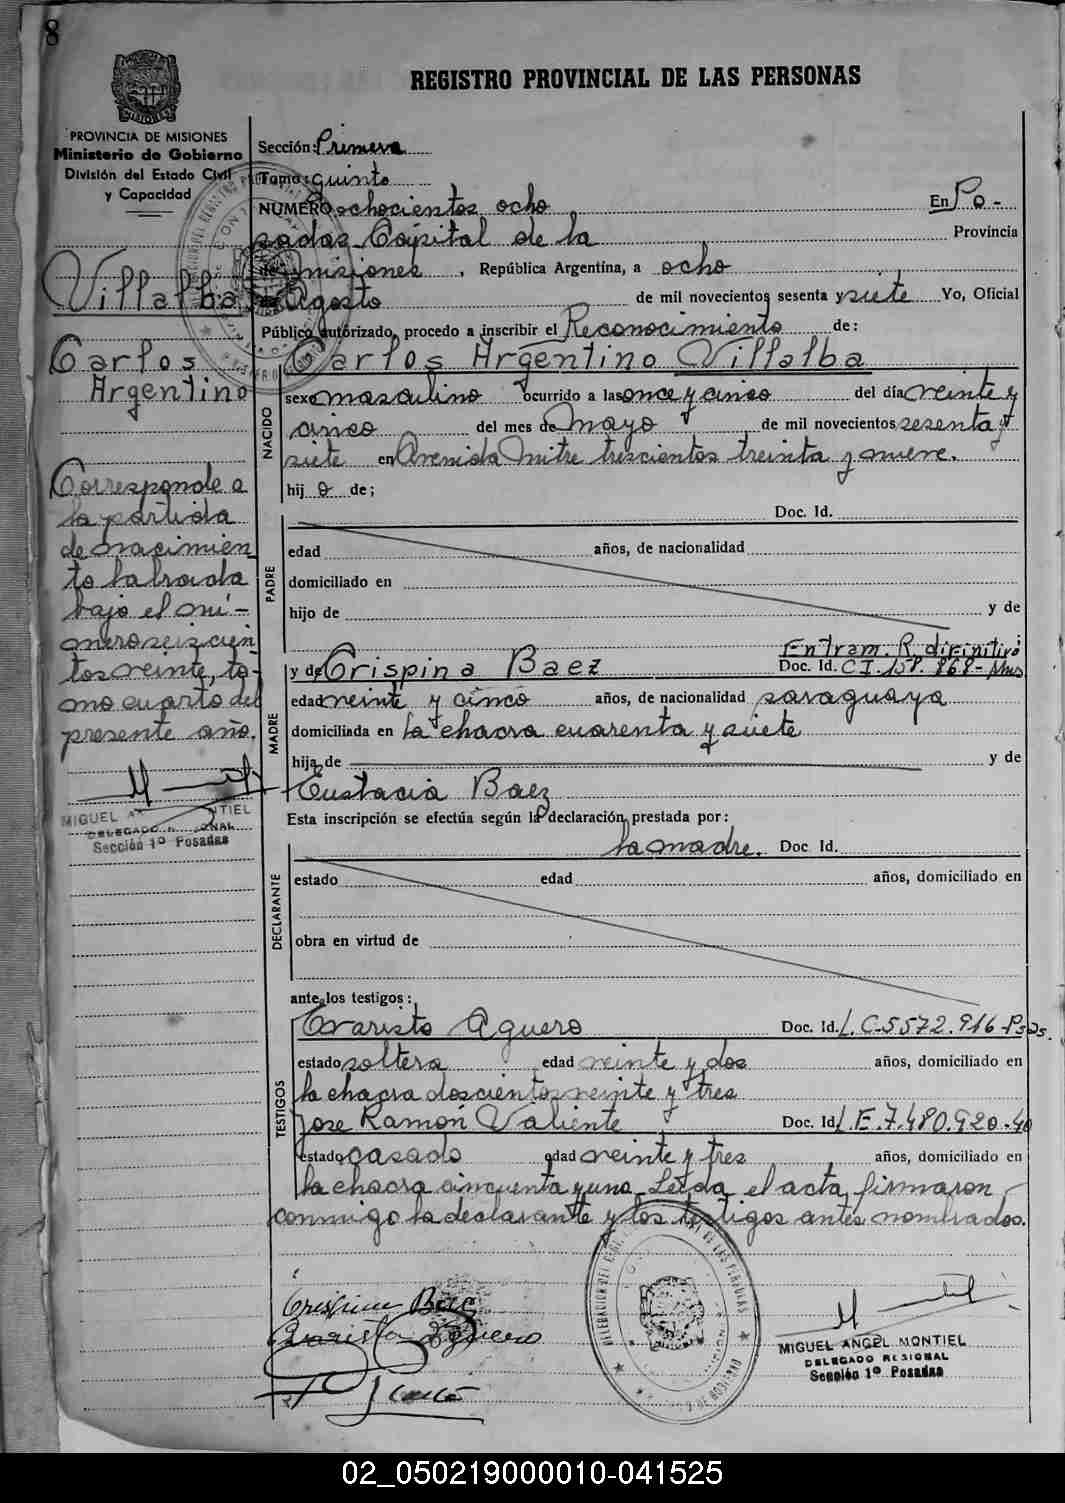 8
REGISTRO PROVINCIAL DE LAS PERSONAS
PROVINCIA DE MISIONES
Ministerio de Gobierno
División del Estado Civil
y Capacidad
Villalba
Carlos
Argentino
Corresponde a
la partida
de nacimien
to labrada
bajo el nú-
mero seiscien
tos veinte, to-
mo cuarto del
presente año.
MIGUEL A NTIEL
DELEGADO R IONAL
Sección 1º Posadas
Sección: Primera
Tomo: quinto
NUMERO ochocientos ocho En Po-
sadas Capital de la Provincia
de misiones, República Argentina, a ocho
de Agosto de mil novecientos sesenta y siete Yo, Oficial
Público autorizado, procedo a inscribir el Reconocimiento de:
Carlos Argentino Villalba
NACIDO
sexo masculino ocurrido a las once y cinco del día veinte y
cinco del mes de mayo de mil novecientos sesenta y
siete en Avenida mitre trescientos treinta y nueve.
hij o de;
PADRE
Doc. Id.
edad años, de nacionalidad
domiciliado en
hijo de y de
MADRE
Entram. R. difinitivo
y de Crispina Baez Doc. Id. C I. 158. 868- Mns
edad veinte y cinco años, de nacionalidad paraguaya
domiciliada en la chacra cuarenta y siete
hija de y de
Eustacia Baez
Esta inscripción se efectúa según la declaración prestada por:
la madre. Doc Id.
DECLARANTE
estado edad años, domiciliado en
obra en virtud de
ante los testigos:
TESTIGOS
Evaristo Aguero Doc. Id. L. C. 5572.916-Psds.
estado soltera edad veinte y dos años, domiciliado en
la chacra doscientos veinte y tres
Jose Ramón Valiente Doc. Id L. E. 7.480.920-
estado casado edad veinte y tres años, domiciliado en
la chacra cincuenta y una. Leida el acta, firmaron
conmigo la declarante y los testigos antes nombrados.
Crispina Baez
Evarista Aguero
MIGUEL ANGEL MONTIEL
DELEGADO REGIONAL
Sección 1º Posadas
02_050219000010-041525